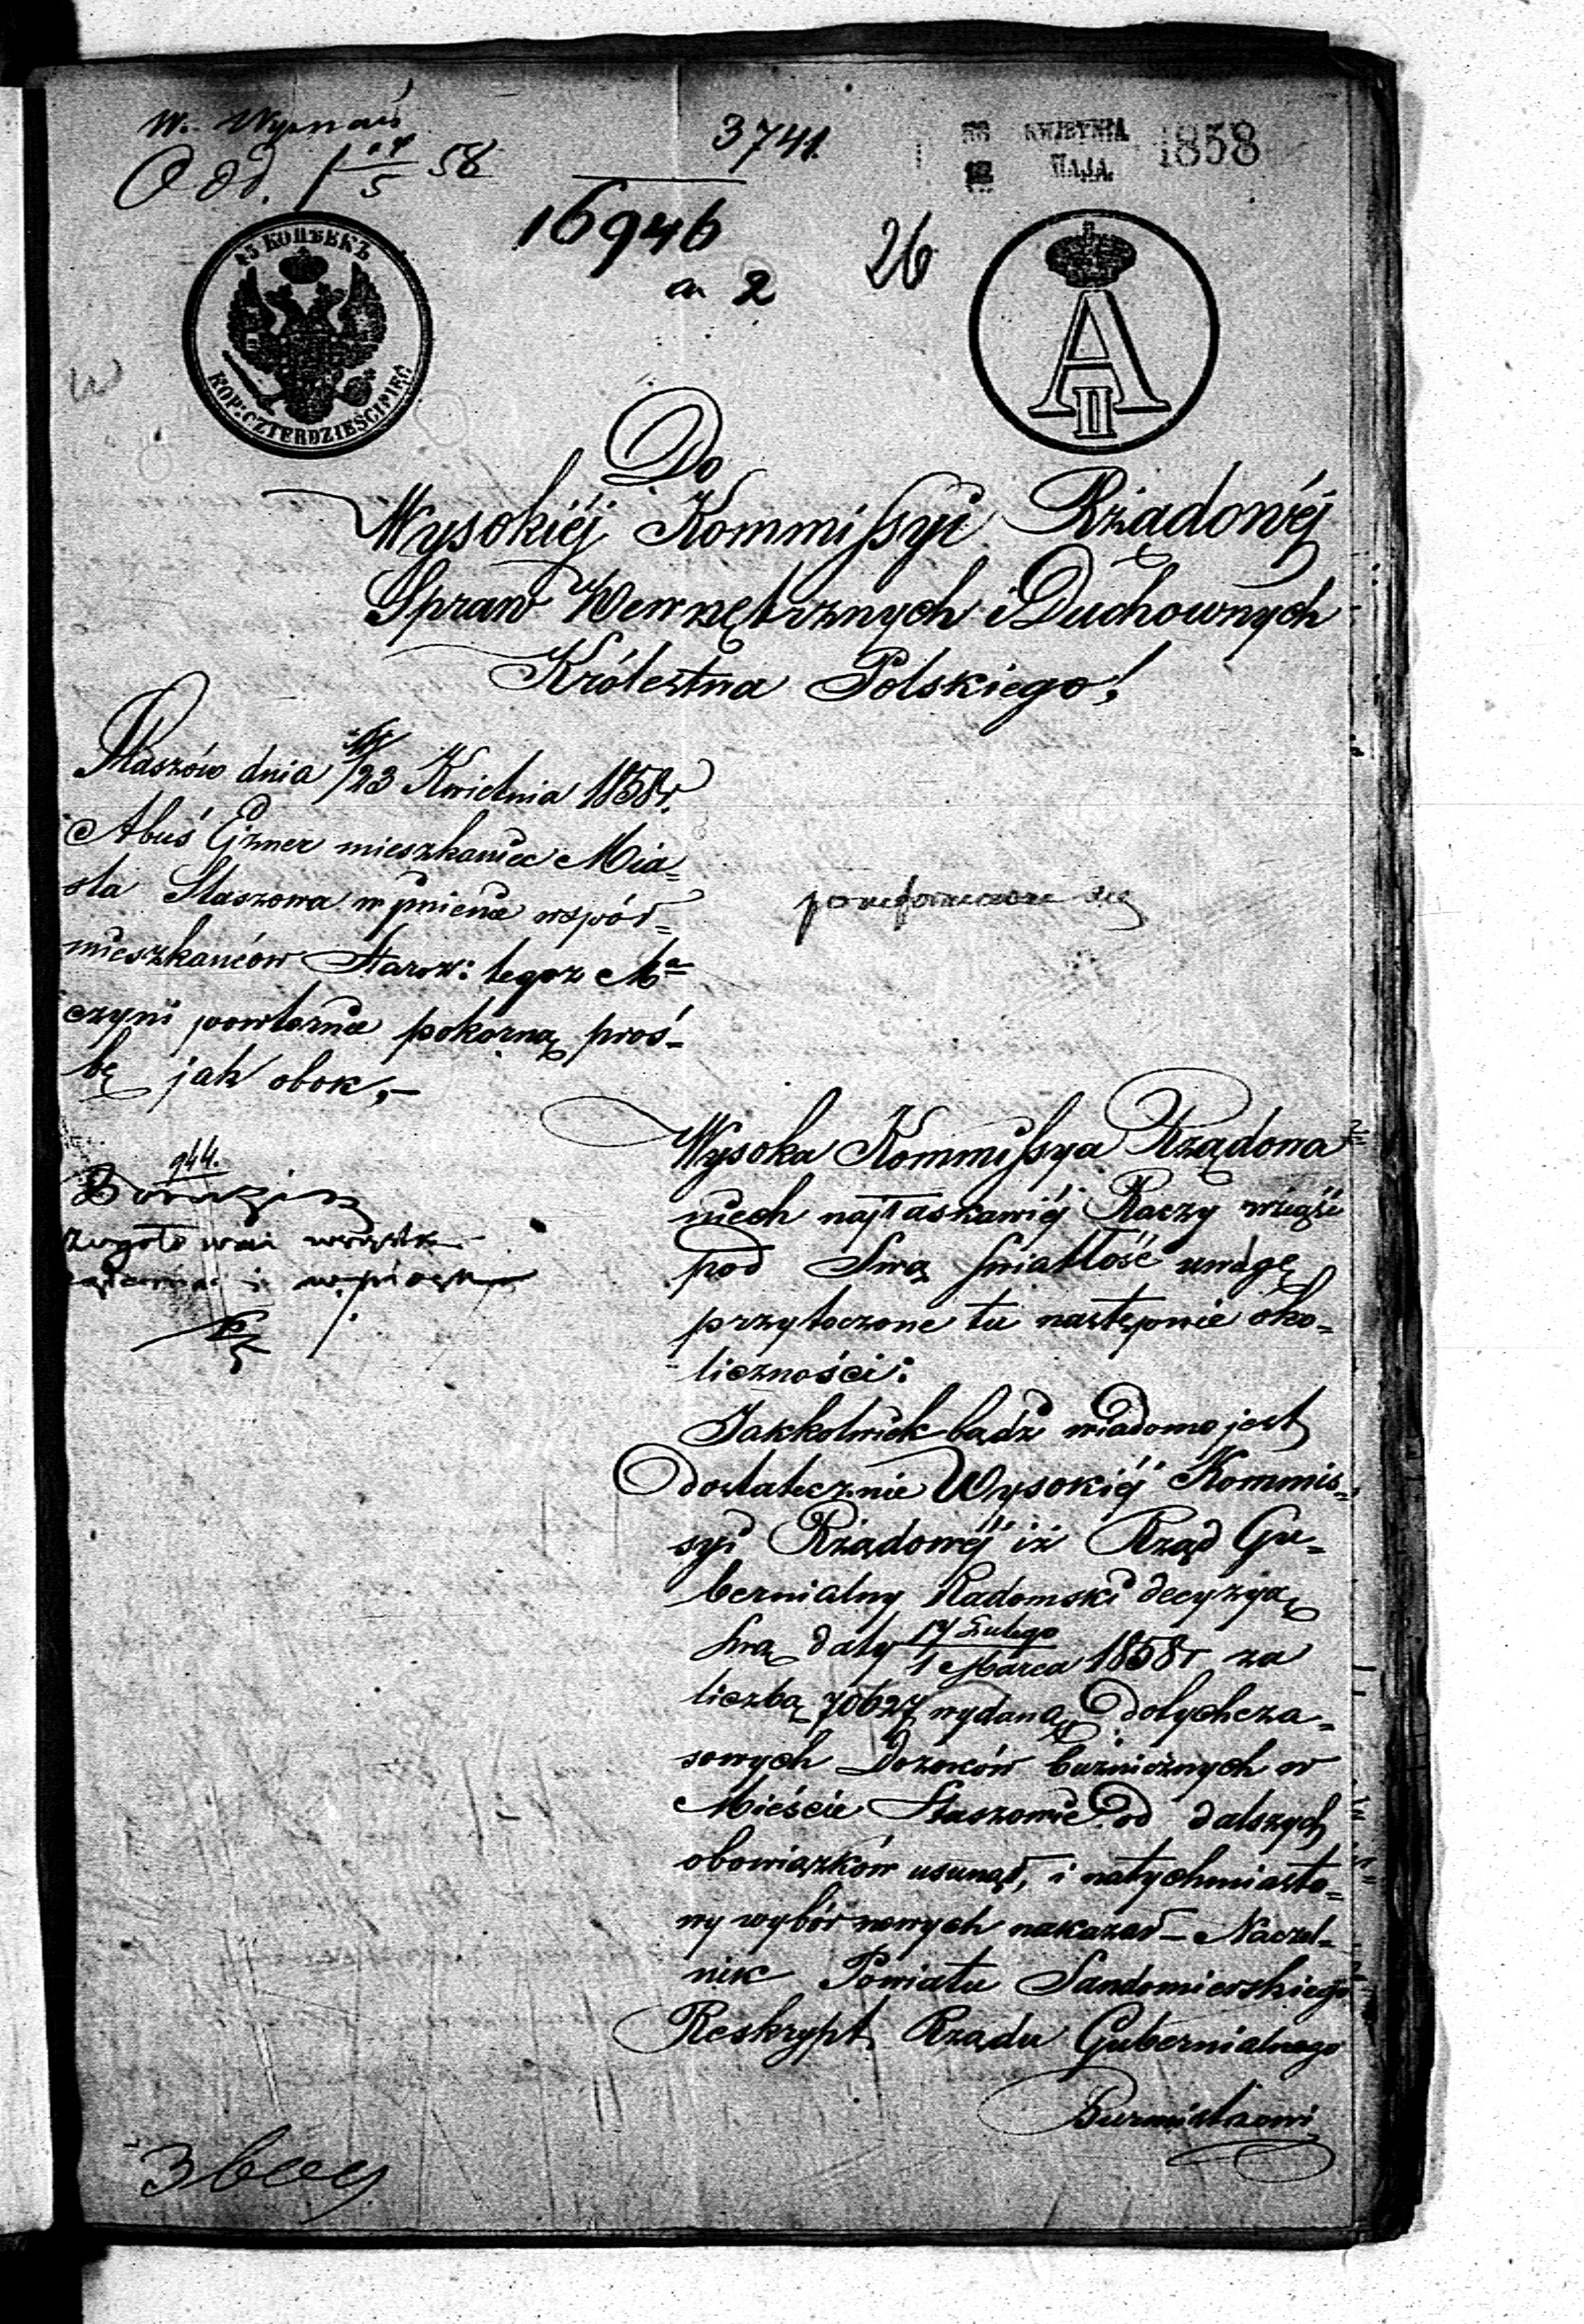 W. Wyznań
3741.
KWIETNIA
MAJA
1858
16946
a 2
26
45 КОПѢЕКЪ
KOP: CZTERDZIEŚCI PIĘĆ
A II
Do
Wysokiéj Kommissyi Rządowéj
Spraw Wewnętrznych i Duchownych
Królestwa Polskiego!
Staszów dnia 11/23 Kwietnia 1858 r.
Abuś Ejzner mieszkaniec Mia=
sta Staszowa w imieniu współ=
mieszkańców Staroz: tegoż Mta
czyni powtórnie pokorną proś=
bę jak obok,–
Wysoka Kommissya Rządowa
niech najłaskawiéj Raczy wziąść
pod Swą światłość uwagę
przytoczone tu następnie oko=
liczności:
Jakkolwiek bądź wiadomo jest
dostatecznie Wysokiéj Kommis=
syi Rządowéj iż Rząd Gu=
bernialny Radomski decyzyą
swą daty 17 Lutego / 1 Marca 1858 r za
liczbą 70627 wydaną Dotychcza=
sowych Dozorców bużnicznych w
Mieście Staszowie od dalszych
obowiązków usunął, i natychmiasto=
wy wybór nowych nakazał – Naczel=
nik Powiatu Sandomierskiego
Reskrypt Rządu Gubernialnego
Burmistrzowi
944.